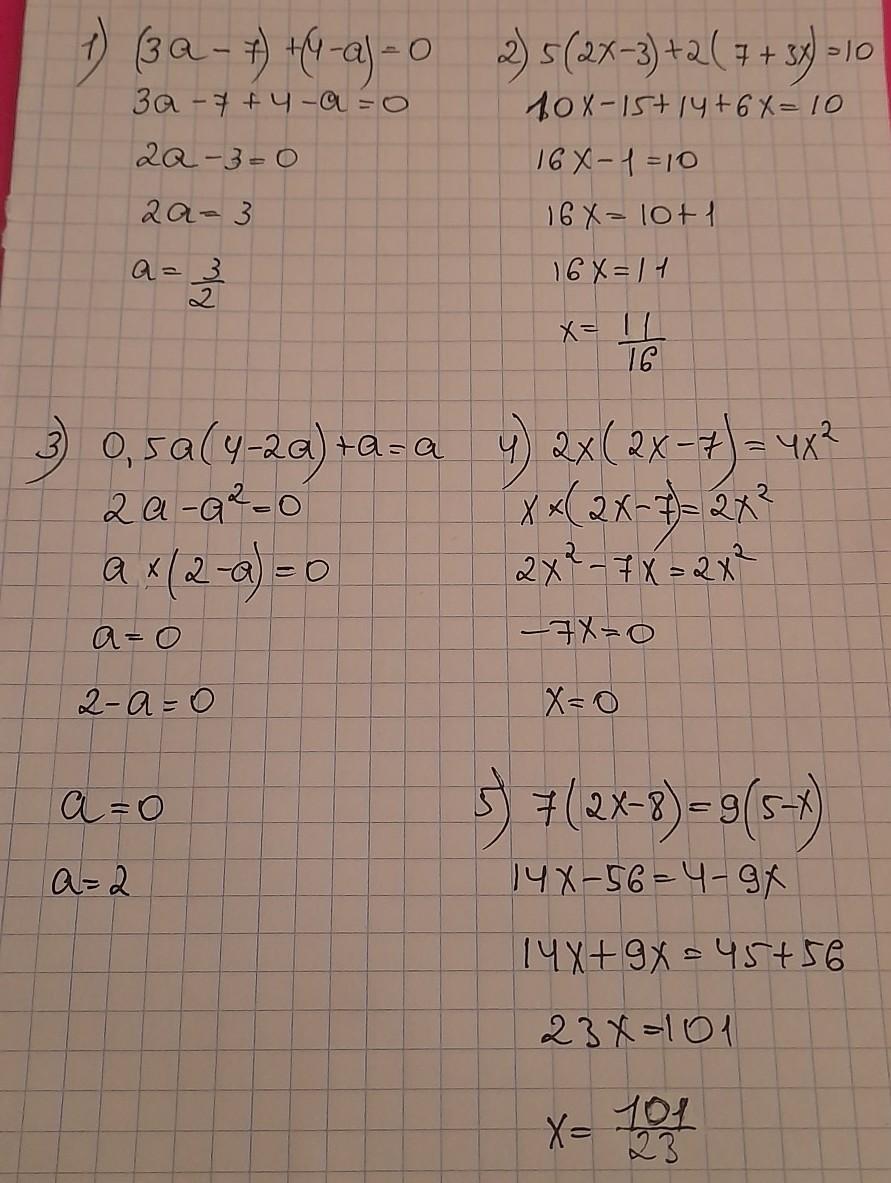 1) (3a - 7) + (4 - a) = 0
3a - 7 + 4 - a = 0
2a - 3 = 0
2a = 3
a = 3/2
2) 5(2x - 3) + 2(7 + 3x) = 10
10x - 15 + 14 + 6x = 10
16x - 1 = 10
16x = 10 + 1
16x = 11
x = 11/16
3) 0,5a(4 - 2a) + a = a
2a - a² = 0
a × (2 - a) = 0
a = 0
2 - a = 0
a = 0
a = 2
4) 2x(2x - 7) = 4x²
x × (2x - 7) = 2x²
2x² - 7x = 2x²
-7x = 0
x = 0
5) 7(2x - 8) = 9(5 - x)
14x - 56 = 4 - 9x
14x + 9x = 45 + 56
23x = 101
x = 101/23